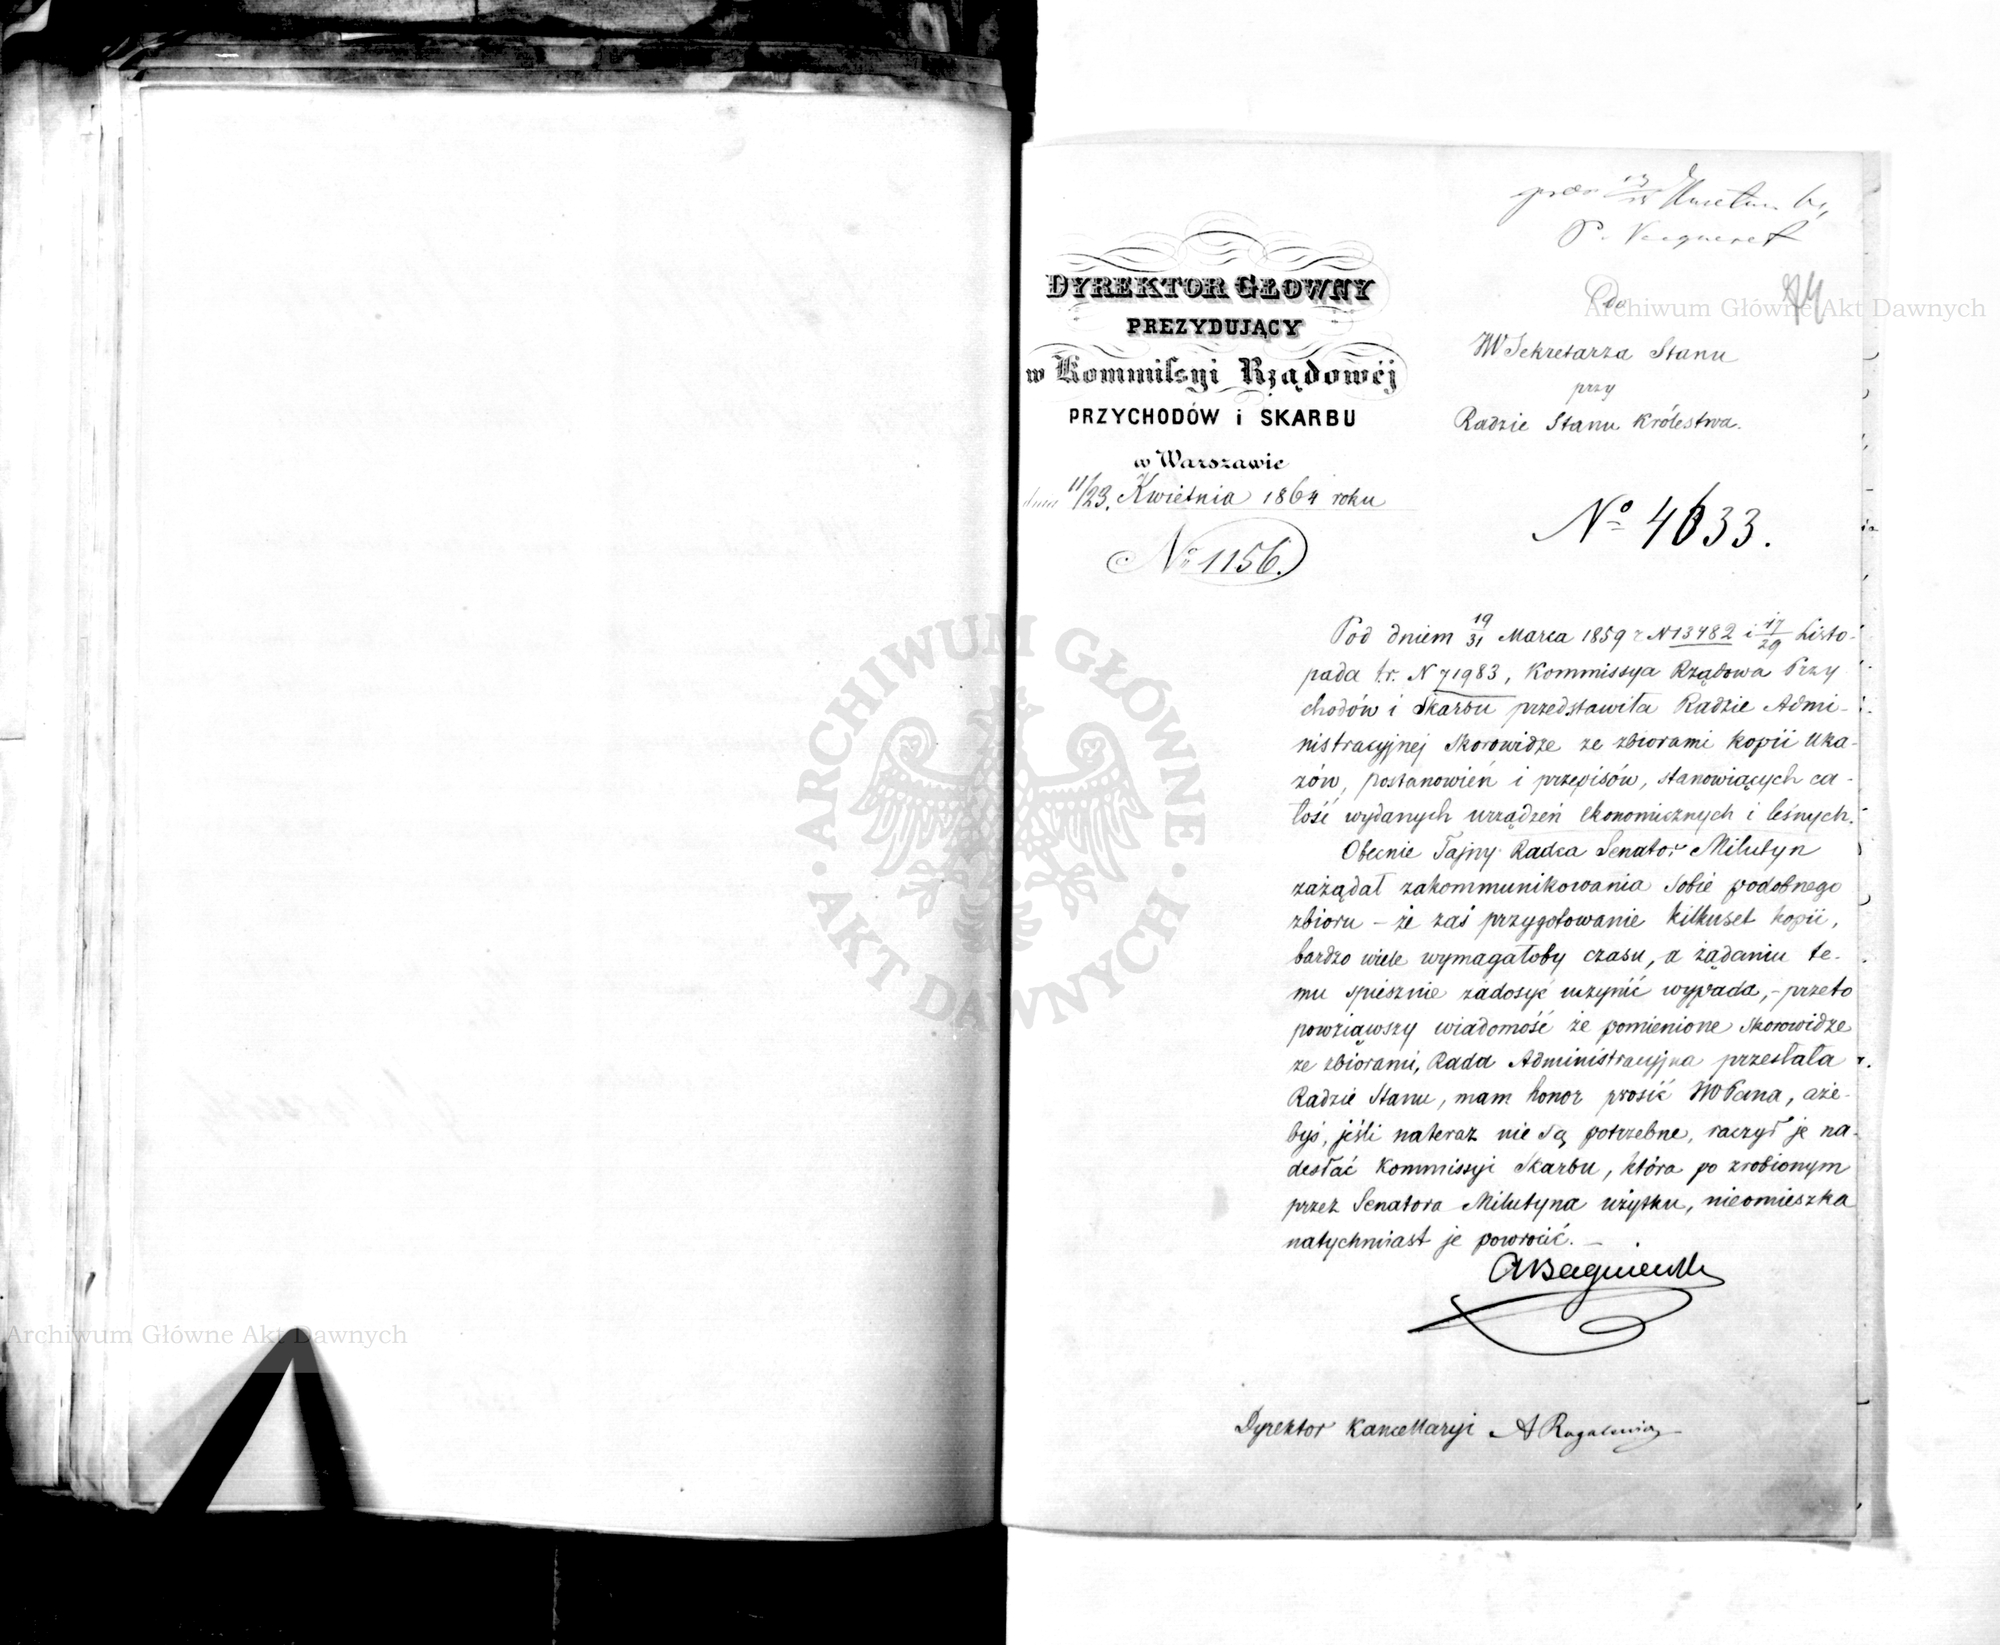 DYREKTOR GŁOWNY
PREZYDUJĄCY
w Kommissyi Rządowéj
PRZYCHODÓW i SKARBU
w Warszawie
dnia 11/23. Kwietnia 1864 roku
No 1156.
Do
74
W Sekretarza Stanu
przy
Radzie Stanu Królestwa.
No 4633.
Pod dniem 19/31 Marca 1859 r N 13482 i 17/29 Listo-
pada t.r. N 71983, Kommissya Rządowa Przy
chodów i Skarbu przedstawiła Radzie Admi-
nistracyjnej Skorowidze ze zbiorami kopii Uka-
zów, postanowień i przepisów, stanowiących ca-
łość wydanych urządzeń ekonomicznych i leśnych.
Obecnie Tajny Radca Senator Milutyn
zażądał zakommunikowania sobie podobnego
zbioru – że zaś przygotowanie kilkuset kopii,
bardzo wiele wymagałoby czasu, a żądaniu te-
mu spiesznie zadosyć uczynić wypada, – przeto
powziąwszy wiadomość że pomienione Skorowidze
ze zbiorami, Rada Administracyjna przesłała
Radzie Stanu, mam honor prosić WPana, aże-
byś, jeśli nateraz nie są potrzebne, raczył je na-
desłać Kommissyi Skarbu, która po zrobionym
przez Senatora Milutyna użytku, nieomieszka
natychmiast je powrócić. –
Dyrektor Kancellaryi A Rogalewicz
Archiwum Główne Akt Dawnych
Archiwum Główne Akt Dawnych
ARCHIWUM GŁÓWNE · AKT DAWNYCH ·